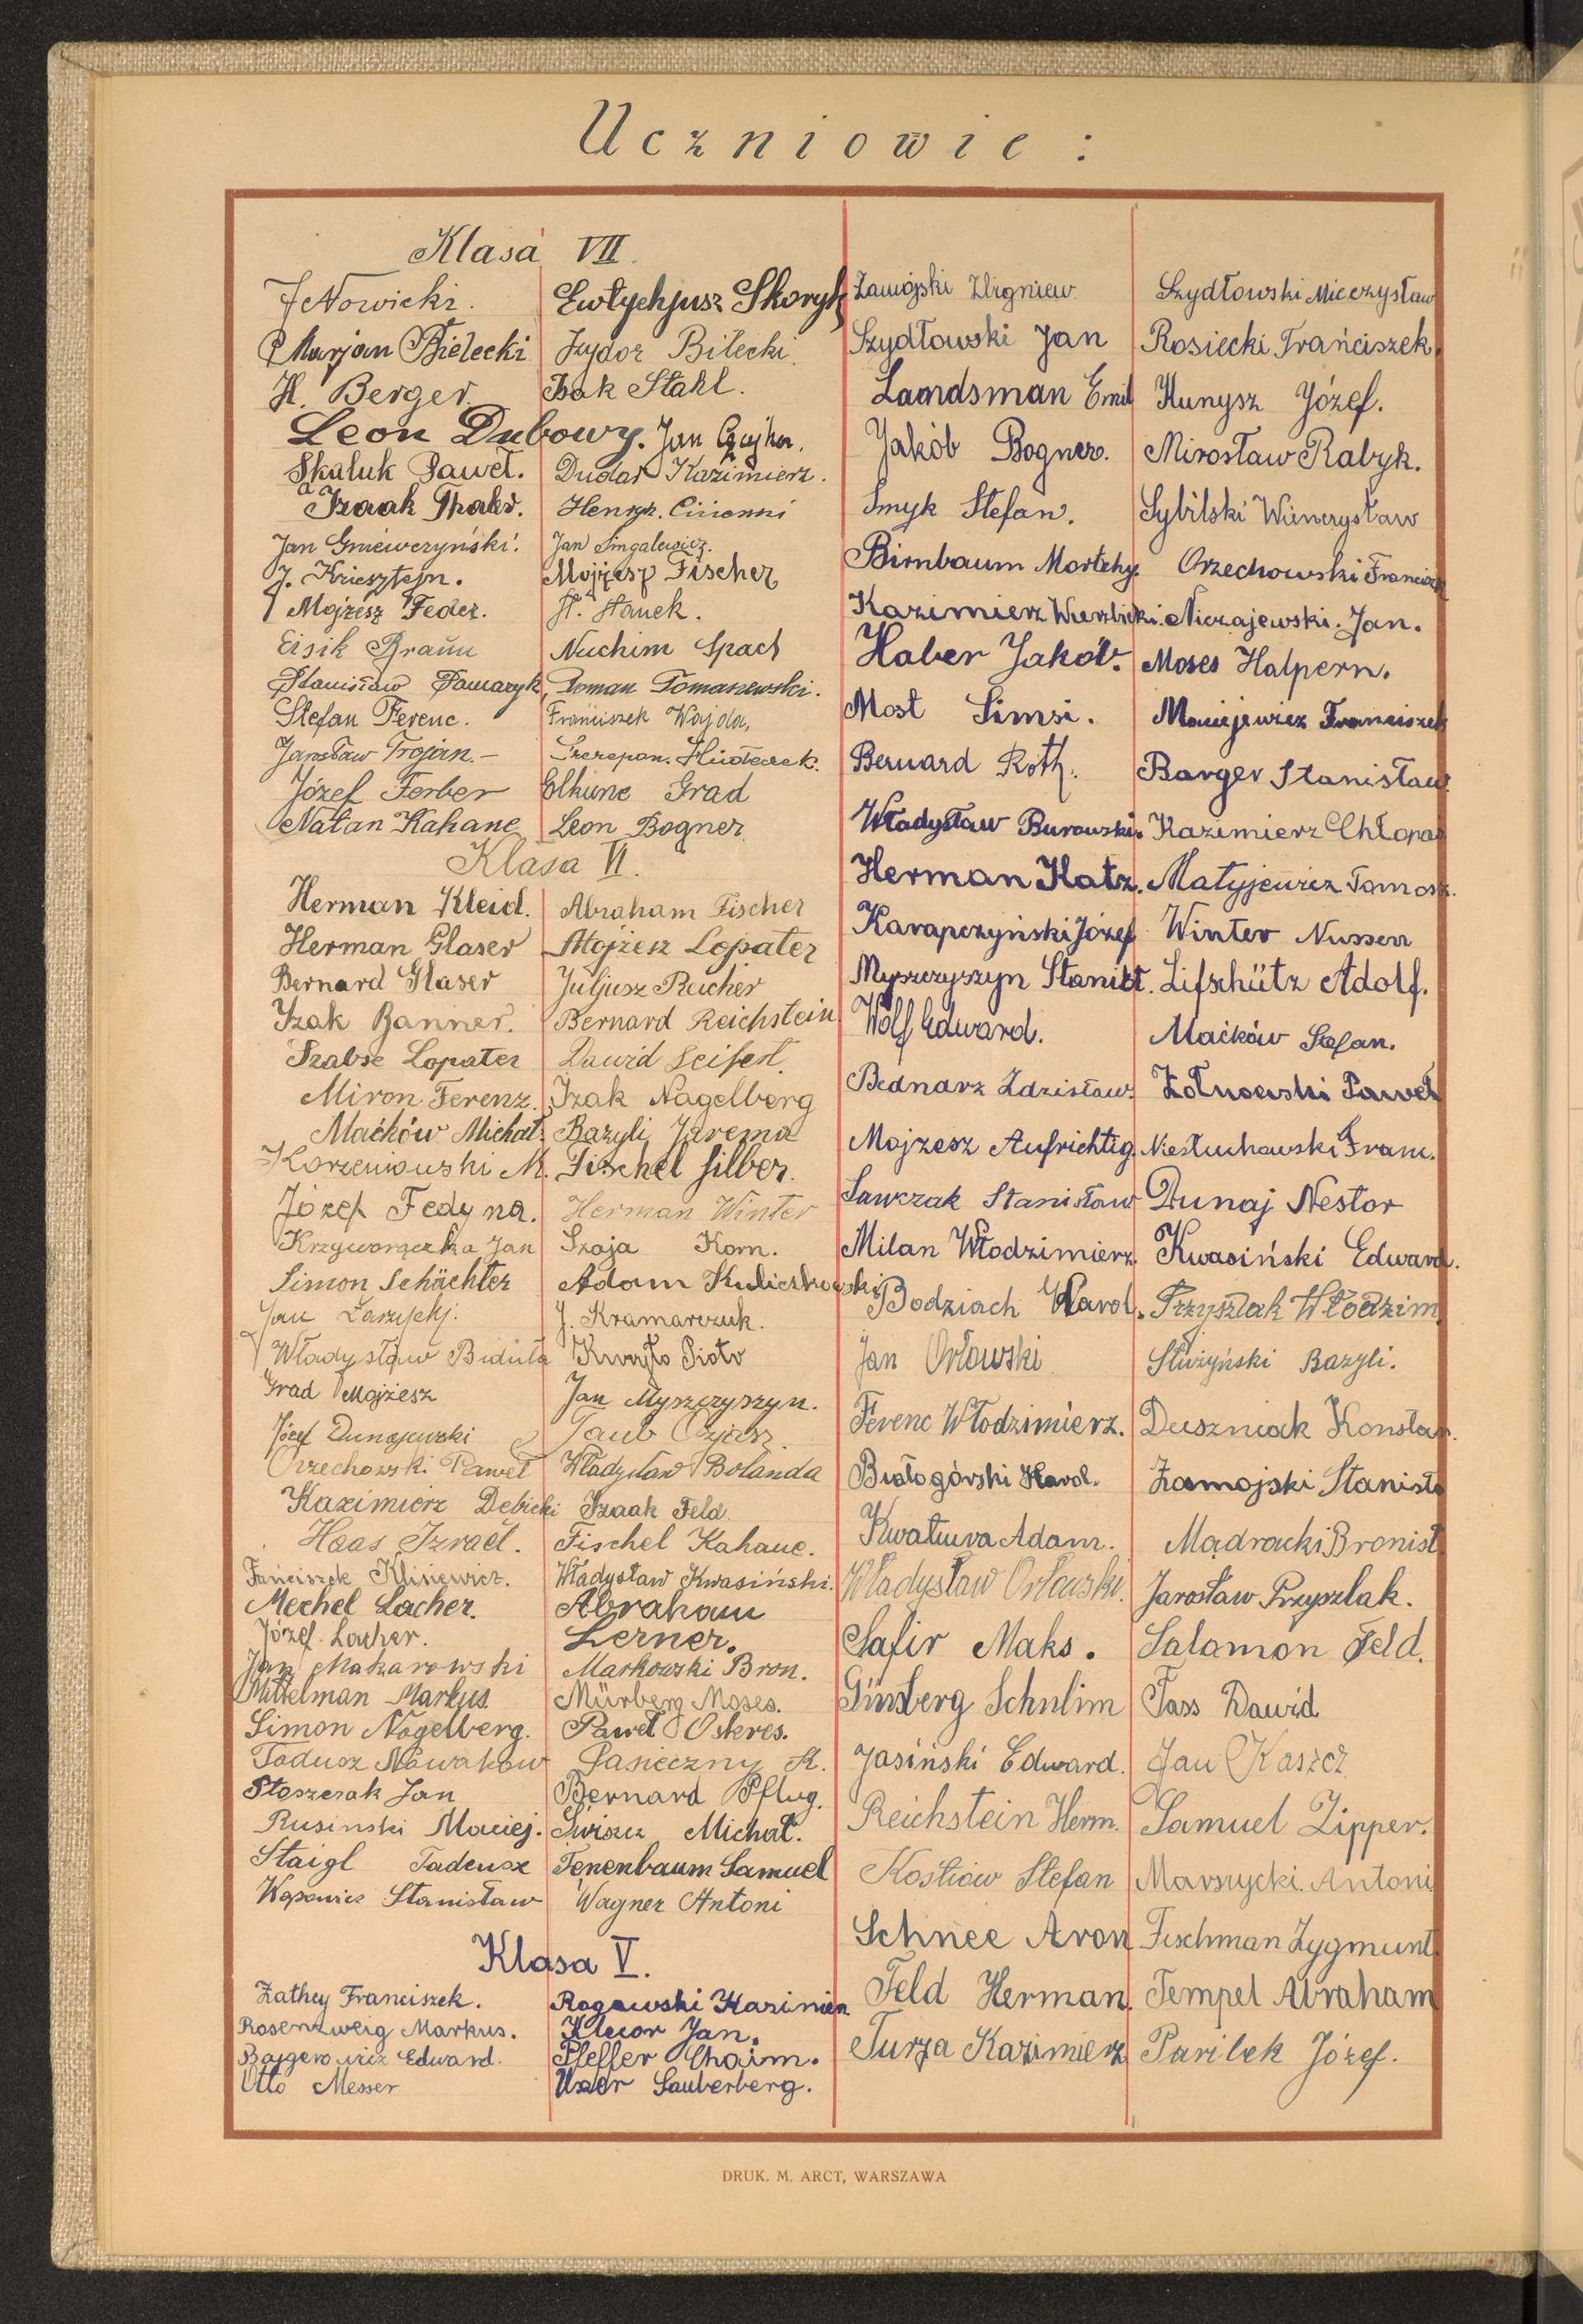 Uczniowie :
Klasa VII.
J Nowicki.
Marjan Bielecki
H. Berger.
Leon Dubowy.
Skaluk Paweł.
Izaak
Jan Gniewczyński.
J. Kriesztejn.
Mojżesz Feder.
Eisik Braun
Stanisław
Stefan Ferenc.
Jarosław Trojan. –
Józef Ferber
Natan Kahane
Ewtychjusz Skoryk
Izydor Bilecki.
Izak Stahl.
Jan Czajka.
Dudar Kazimierz.
Henryk.
Jan Singalewicz.
Mojżesz Fischer
H. Hanek.
Nuchim Spach
Roman Tomaszewski.
Franciszek Wajda,
Szczepan.
Elkune Grad
Leon Bogner
Klasa VI.
Herman Kleid.
Herman Glaser
Bernard Glaser
Izak Banner.
Szabse Lopater
Miron Ferenz.
Maćków Michał.
Korzeniowski M.
Józef Fedyna.
Krzyworączka Jan
Simon Schächter
Jan
Władysław Biduła
Grad Mojżesz
Józef Dunajewski
Orzechowski Paweł
Kazimierz Debicki
Haas Izrael.
Franciszek Klisiewicz.
Mechel Lacher.
Józef Lacher.
Jan Makarowski
Mittelman Markus.
Simon Nagelberg.
Tadusz Nowaków
Staszczak Jan
Rusinski Maciej.
Staigl Tadeusz
Stanisław
Abraham Fischer
Mojżesz Lopater
Juljusz Reicher
Bernard Reichstein
Dawid Seifert.
Izak Nagelberg
Bazyli Jarema
Fischel Silber.
Herman Winter
Szaja Korn.
Adam Kuliczkowski
J. Kramarczuk.
Piotr
Jan Myszczyszyn.
Taub Ozjasz.
Władysław Bolanda
Izaak Feld.
Fischel Kahane.
Władysław Kwasiński.
Abraham
Lerner.
Markowski Bron.
Mürberg Moses.
Paweł Oskres.
Pasieczny K.
Bernard Pflug.
Michał.
Tenenbaum Samuel
Wagner Antoni
Klasa V.
Zathey Franciszek.
Rosenzweig Markus.
Bajgerowicz Edward.
Otto Messer
Rogowski Kazimierz
Jan.
Pfeffer Chaim.
Uszer Sauberberg.
Zamojski Zbigniew
Szydłowski Jan
Landsman Emil
Jakób Bogner.
Smyk Stefan.
Birnbaum Mortchy.
Kazimierz Wierzbicki.
Haber Jakób.
Most Simsi.
Bernard Roth.
Władysław Burowski.
Herman Katz.
Karapczyński Józef
Myszczyszyn Stanisł.
Wolf Edward.
Bednarz Zdzisław.
Mojzesz Aufrichtig.
Sawczak Stanisław
Milan Włodzimierz.
Bodziach Karol.
Jan Orłowski
Ferenc Włodzimierz.
Białogórski Karol.
Adam.
Władysław Orłowski.
Safir Maks.
Ginsberg Schulim
Jasiński Edward.
Reichstein Herm.
Kostiów Stefan
Schnee Aron
Feld Herman.
Turza Kazimierz
Szydłowski Mieczysław
Rosiecki Franciszek.
Kunysz Józef.
Mirosław Rabyk.
Sybilski
Orzechowski Franciszek
Niezajewski. Jan.
Moses Halpern.
Maciejewicz Franciszek
Barger Stanisław
Kazimierz Chłopas
Matyjewicz Tomasz.
Winter Nussen
Lifschütz Adolf.
Maćków Stefan.
Paweł
Niesłuchowski Fran.
Dunaj Nestor
Kwasiński Edward.
Przyszlak Włodzim.
Służyński Bazyli.
Duszniak Konstan.
Zamojski Stanisła
Mądracki Bronisł.
Jarosław Przyszlak.
Salamon Feld.
Fass Dawid
Jan Kaszcz
Samuel Zipper.
Marszycki. Antoni
Fischman Zygmunt.
Tempel Abraham
Parilek Józef.
DRUK. M. ARCT, WARSZAWA